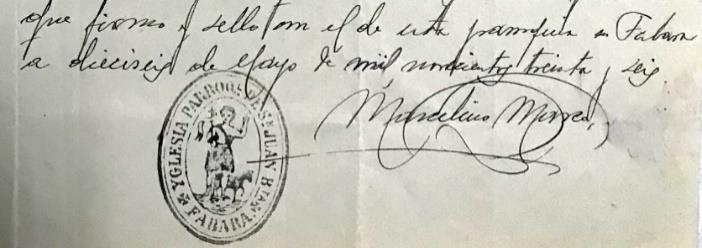 que firmo y sello con el de esta parroquia en Fabara
a dieciseis de Mayo de mil novecientos treinta y seis.
Marcelino
YGLESIA PARROQL DE Sn JUAN BTA
FABARA